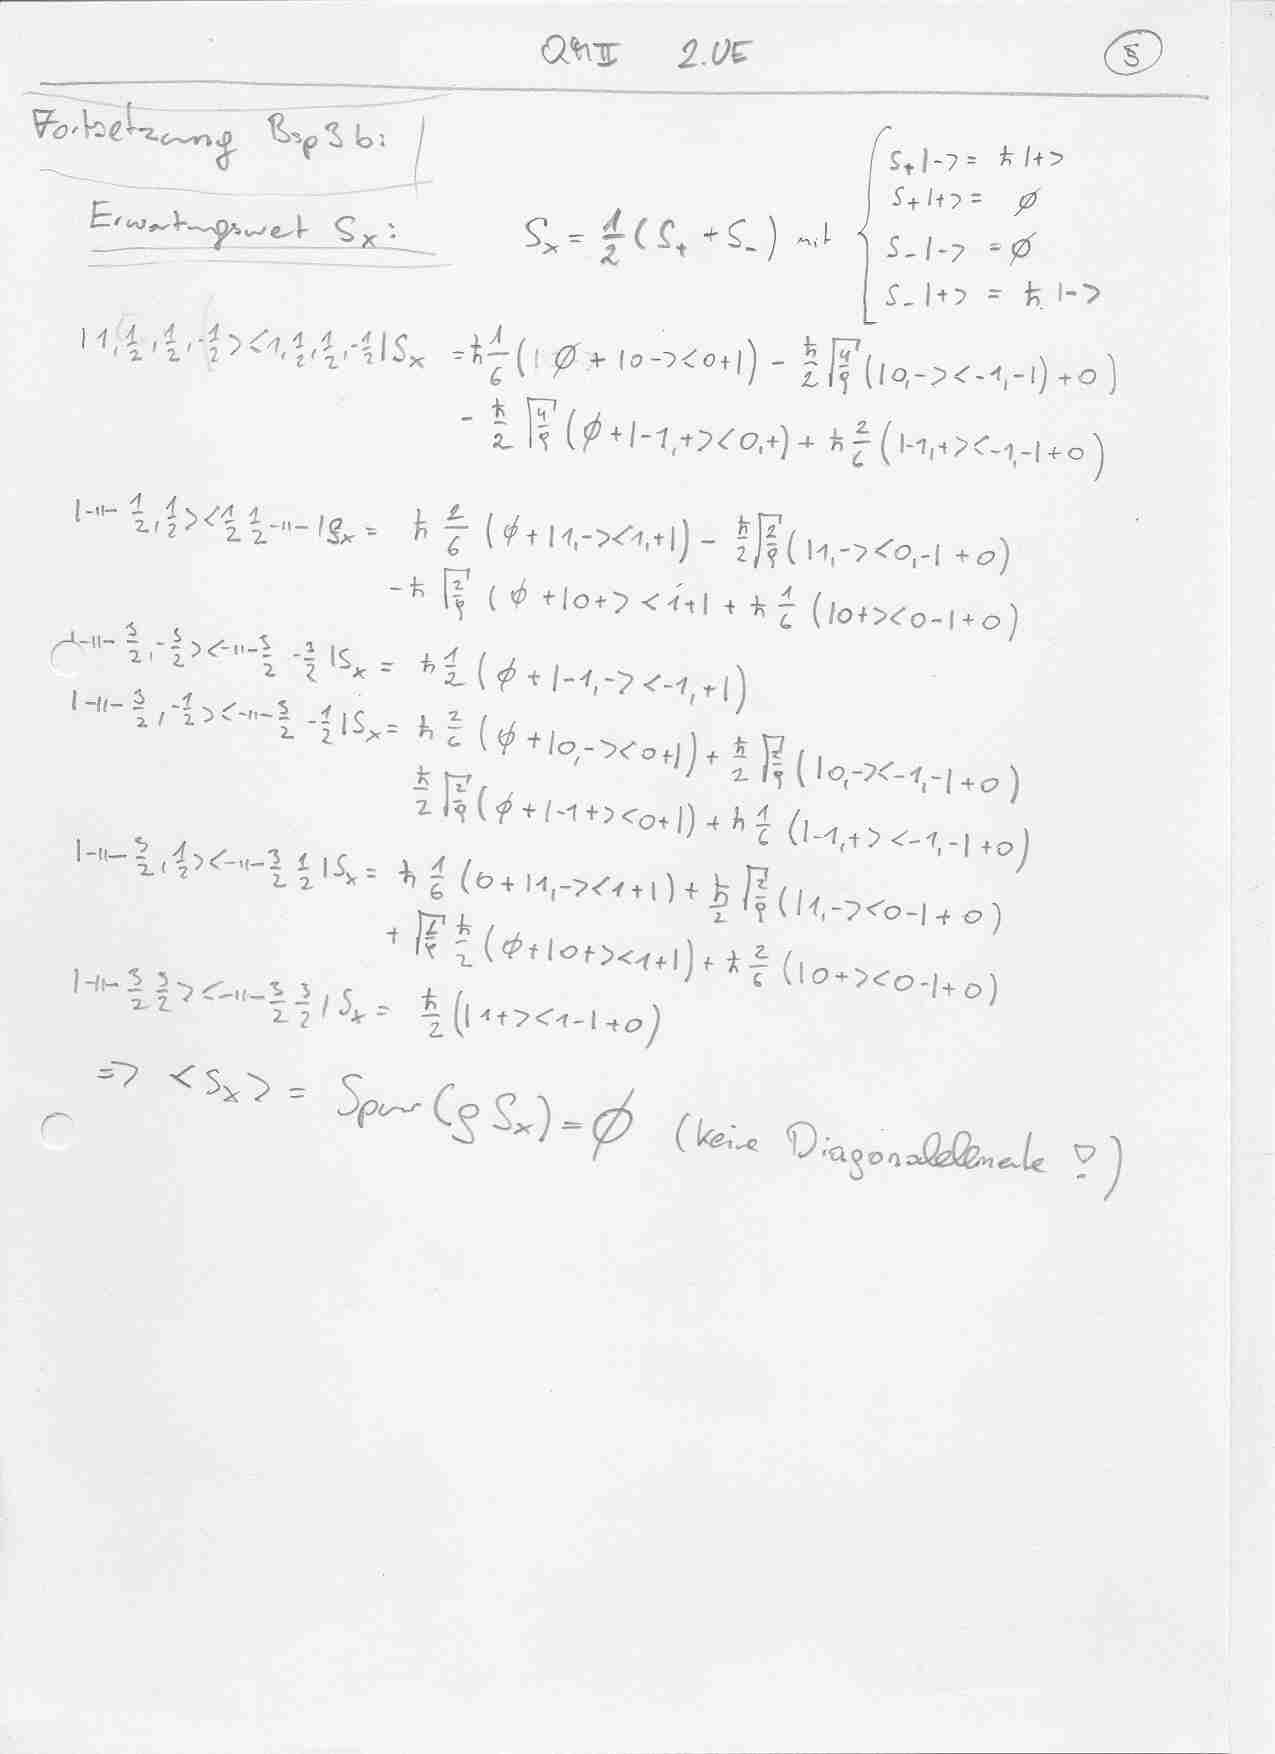 QM II 2.UE 5
Fortsetzung Bsp 3b:
S₊|-> = ħ |+>
S₊|+> = ∅
Erwartungswet Sₓ: Sₓ = 1/2 (S₊ + S₋) mit
S₋|-> = ∅
S₋|+> = ħ |->
|1, 1/2, 1/2, -1/2> <1, 1/2, 1/2, -1/2| Sₓ = ħ 1/6 (|∅ + |0-><0+|) - ħ/2 √4/9 (|0,-><-1,-|) + 0)
- ħ/2 √4/9 (∅ + |-1,+><0,+) + ħ 2/6 (|-1,+><-1,-| + 0)
|-"- 1/2, 1/2> <1/2 1/2 -"-| Sₓ = ħ 2/6 (∅ + |1,-><1,+|) - ħ/2 √2/9 (|1,-><0,-| + 0)
-ħ √2/9 (∅ + |0+> <1+| + ħ 1/6 (|0+><0-| + 0)
|-"- 3/2, -3/2> <-"- 3/2 -3/2| Sₓ = ħ 1/2 (∅ + |-1,-><-1,+|)
|-"- 3/2, -1/2> <-"- 3/2 -1/2| Sₓ = ħ 2/6 (∅ + |0,-><0+|) + ħ/2 √2/9 (|0,-><-1,-| + 0)
ħ/2 √2/9 (∅ + |-1+><0+|) + ħ 1/6 (|-1,+><-1,-| + 0)
|-"- 3/2, 1/2> <-"- 3/2 1/2| Sₓ = ħ 1/6 (0 + |1,-><1+|) + ħ/2 √2/9 (|1,-><0-| + 0)
+ √2/9 ħ/2 (∅ + |0+><1+|) + ħ 2/6 (|0+><0-| + 0)
|-"- 3/2 3/2> <-"- 3/2 3/2| Sₓ = ħ/2 (|1+><1-| + 0)
=> <Sₓ> = Spur (ρ Sₓ) = ∅ (keine Diagonalelemente !)